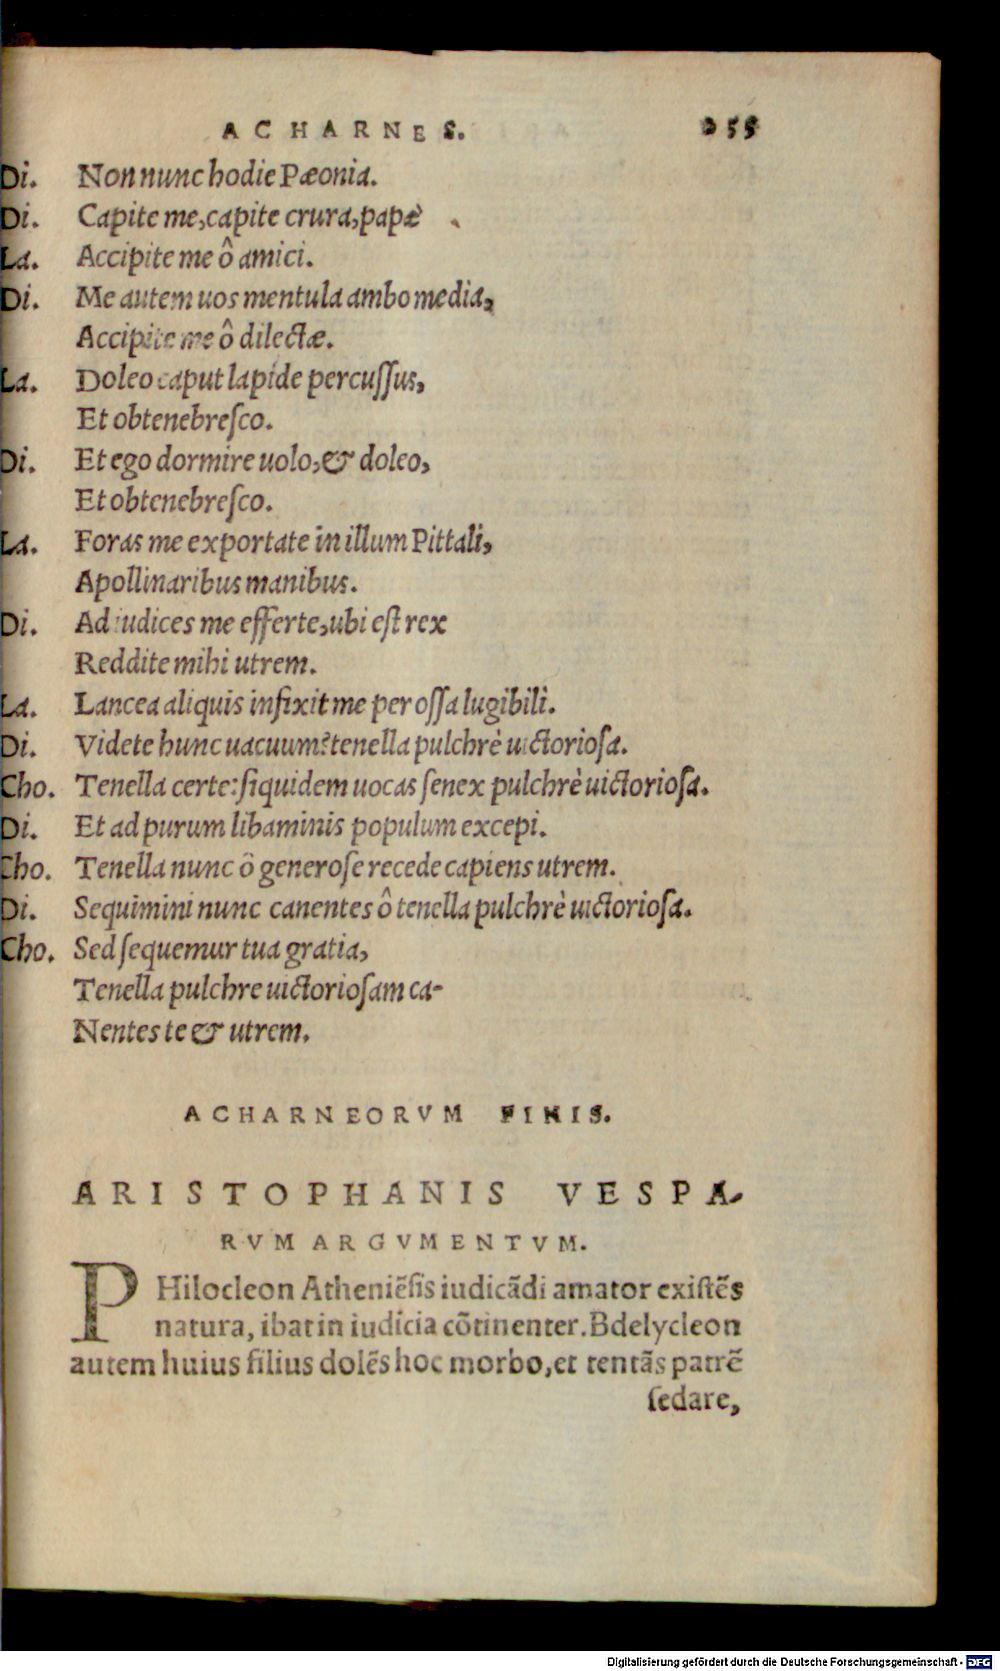 ACHARNES. 255
Di. Non nunc hodie Pæonia.
Di. Capite me, capite crura, papæ
La. Accipite me ô amici.
Di. Me autem uos mentula ambo media,
Accipite me ô dilectæ.
La. Doleo caput lapide percuſſus,
Et obtenebreſco.
Di. Et ego dormire uolo, & doleo,
Et obtenebreſco.
La. Foras me exportate in illum Pittali,
Apollinaribus manibus.
Di. Ad iudices me efferte, ubi eſt rex
Reddite mihi utrem.
La. Lancea aliquis infixit me per oſſa lugibili.
Di. Videte hunc uacuum? tenella pulchrè uictorioſa.
Cho. Tenella certe: ſiquidem uocas ſenex pulchrè uictorioſa.
Di. Et ad purum libaminis populum excepi.
Cho. Tenella nunc ô generoſe recede capiens utrem.
Di. Sequimini nunc canentes ô tenella pulchrè uictorioſa.
Cho. Sed ſequemur tua gratia,
Tenella pulchre uictorioſam ca-
Nentes te & utrem.
ACHARNEORVM FINIS.
ARISTOPHANIS VESPA-
RVM ARGVMENTVM.
PHilocleon Atheniẽſis iudicãdi amator exiſtẽs
natura, ibat in iudicia cõtinenter. Bdelycleon
autem huius filius dolẽs hoc morbo, et tentãs patrẽ
ſedare,
Digitalisierung gefördert durch die Deutsche Forschungsgemeinschaft - DFG